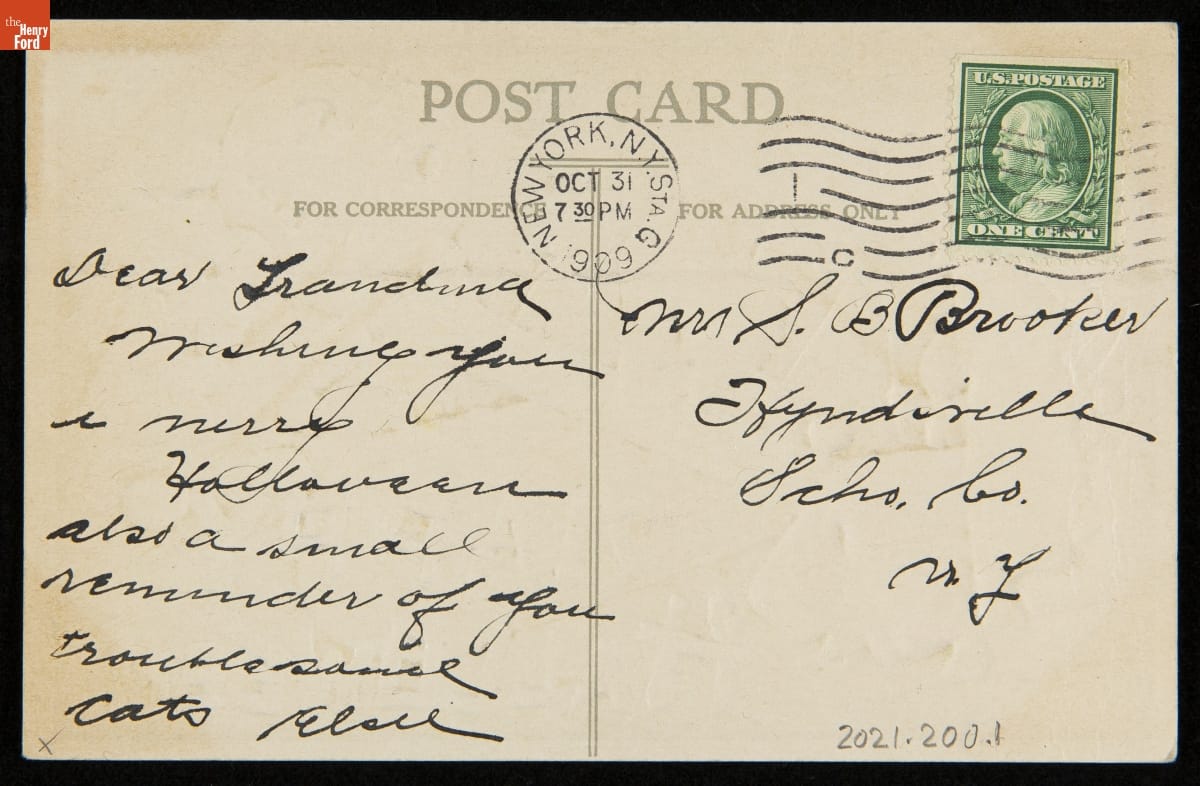 the
Henry
Ford
POST CARD
U.S. POSTAGE
ONE CENT
NEW YORK, N.Y. STA. G
OCT 31
7 30 PM
1909
FOR CORRESPONDENCE
FOR ADDRESS ONLY
Dear Grandma
Wishing you
a merry
Holloween
also a small
reminder of you
troublesome
cats Elsie
Mrs S. B Brooker
Hyndsville
Scho. Co.
N. Y
2021.200.1
x